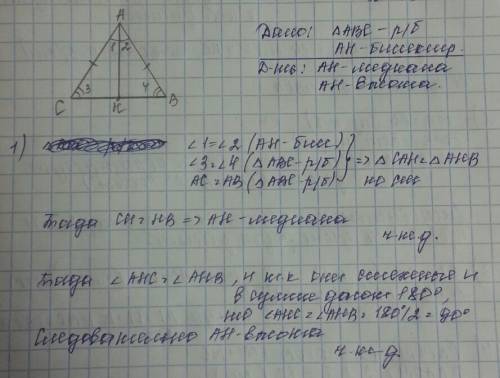 A
1 2
3 4
C H B
Дано: △ABC - р/б
AH - биссектр.
Д-ть: AH - медиана
AH - высота.
1)
∠1 = ∠2 (AH - бисс)
∠3 = ∠4 (△ABC - р/б) } => △CAH = △AHB
AC = AB (△ABC - р/б) по
Тогда CH = HB => AH - медиана
ч.т.д.
Тогда ∠AHC = ∠AHB, и т.к они смежные и
в сумме дают 180°,
то ∠AHC = ∠AHB = 180°/2 = 90°
Следовательно AH - высота
ч.т.д.